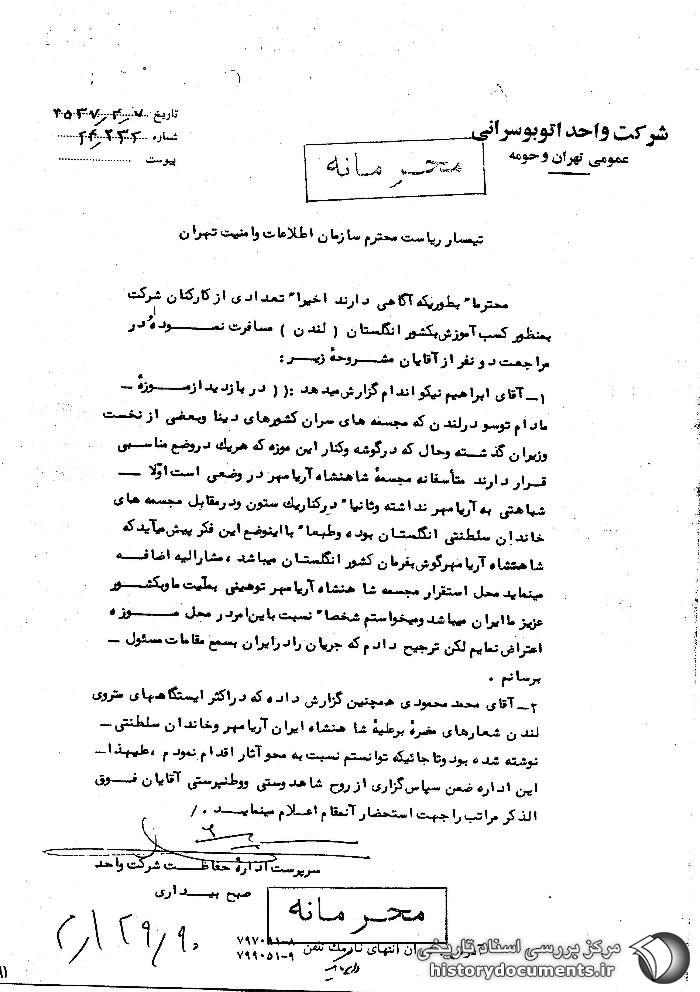 شرکت واحد اتوبوسرانی
عمومی تهران و حومه
تاریخ ۴۵۳۷/۴/۷
شماره
پیوست
محرمانه
تیمسار ریاست محترم سازمان اطلاعات وامنیت تهران
محترما" بطوریکه آگاهی دارند اخیرا" تعدادی از کارکنان شرکت
بمنظور کسب آموزش بکشور انگلستان ( لندن ) مسافرت نموده و در
مراجعت دو نفر از آقایان مشروحهٔ زیر :
۱ـ آقای ابراهیم نیکو اندام گزارش میدهد :(( در بازدید از موزهٔ ـ
مادام توسو در لندن که مجسمه های سران کشورهای دینا وبعضی از نخست
وزیران گذشته وحال که در گوشه وکنار این موزه که هریک در وضع مناسبی
قرار دارند متأسفانه مجسمهٔ شاهنشاه آریامهر در وضعی است اوّلا ـ
شباهتی به آریامهر نداشته وثانیا" در کنار یک ستون ودر مقابل مجسمه های
خاندان سلطنتی انگلستان بوده وطبعا" با اینوضع این فکر پیش میآید که
شاهنشاه آریامهر گوش بفرمان کشور انگلستان میباشد ، مشارالیه اضافه
مینماید محل استقرار مجسمه شاهنشاه آریامهر توهینی بملّیت ما وبکشور
عزیز ما ایران میباشد ومیخواستم شخصا" نسبت باین امر در محل موزه
اعتراض نمایم لکن ترجیح دادم که جریان را در ایران بسمع مقامات مسئول ـ
برسانم .
۲ـ آقای محمد محمودی همچنین گزارش داده که در اکثر ایستگاههای متروی
لندن شعارهای مضره برعلیهٔ شاهنشاه ایران آریامهر وخاندان سلطنتی ـ
نوشته شده بود وتا جائیکه توانستم نسبت به محو آثار اقدام نمودم ، علیهذا ـ
این اداره ضمن سپاس گزاری از روح شاهدوستی ووطنپرستی آقایان فوق
الذکر مراتب را جهت استحضار آنمقام اعلام مینماید ./
سرپرست ادارهٔ حفاظت شرکت واحد
صبح بیداری
محرمانه
تهران انتهای نارمک تلفن ۸-۷۹۷۰۹۱
۹-۷۹۹۰۵۱
مرکز بررسی اسناد تاریخی
historydocuments.ir